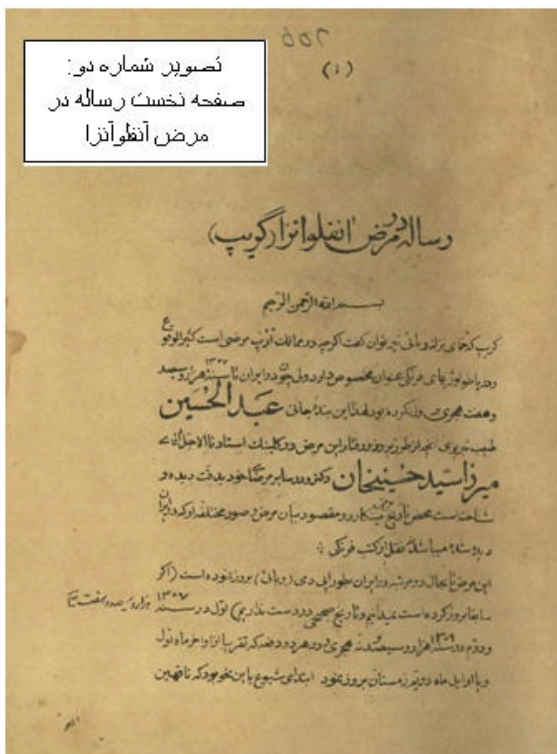 تصویر شماره دو:
صفحه نخست رساله در
مرض آنفلوآنزا
۶۵۶
(۱)
رساله در مرض انفلوانزا (گریپ)
بسم الله الرحمن الرحیم
کریپ که حمای نزله وبائی نیز توان گفت اگرچه در ممالک اروپ مرضی است کثیرالوقوع
و در پاطولوژیهای فرنگی عنوان مخصوص دارد ولی چون در ایران تا سنه ۱۳۰۷ هزار و سیصد
و هفت هجری بروز نکرده بود لهذا این بنده جانی عبدالحسین
طبیب تبریزی آنچه از طرز بروز و رفتار این مرض در کلینیک استاد
میرزا سید حسینخان دکتر و در سایر مرضا خود بدقت دیده و
شناخته است محض تاریخ و مقصود بیان مرض و صور مختلفه که در ایران
دیده شده میباشد نقل از کتب فرنگی
این مرض تا بحال دو مرتبه در ایران بطور اپی دمی (وبائی) بروز نموده است (اگر
سابقا بروز کرده است نمیدانیم و تاریخ صحیحی در دست نداریم) اول در سنه ۱۳۰۷ هزار و سیصد و هفت
و دوم در سنه ۱۳۰۹ هزار و سیصد و نه هجری و در هر دو دفعه که تقریبا از اواخر ماه اول
و یا اوایل ماه دویم زمستان بروز نمود ابتدای شیوع باین نحو بود که ناقهین